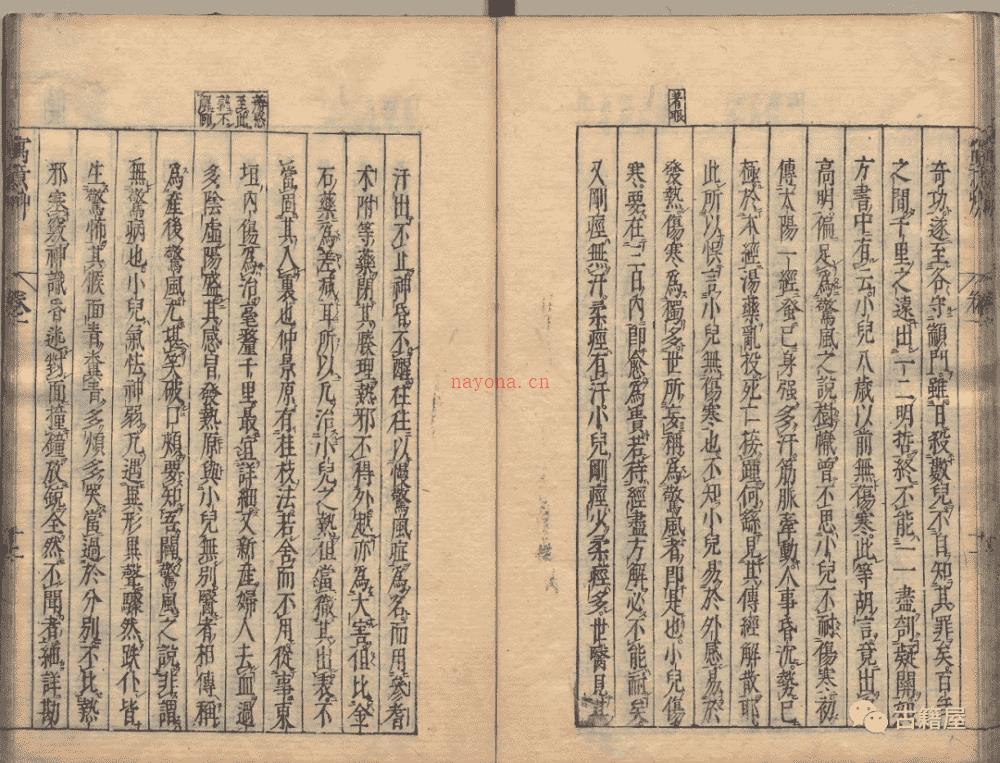 著眼
奇功遂至各守顓門雖日殺數兒不自知其罪矣百年
之間千里之遠出一二明哲終不能一一盡剖疑關如
方書中有云小兒八歲以前無傷寒此等胡言竟出
高明偏足為驚風之說樹幟曾不思小兒不耐傷寒初
傳太陽一經蚤已身强多汗筋脈牽動人事昏沉勢已
極於本經湯藥亂投死亡接踵何繇見其傳經解散耶
此所以悞言小兒無傷寒也不知小兒易於外感易於
發熱傷寒為獨多世所妄稱為驚風者即是也小兒傷
寒要在三日內即愈為貴若待經盡方解必不能耐矣
又剛痙無汗柔痙有汗小兒剛痙少柔痙多世醫見其
婆慈至此孰不
汗出不止神昏不醒往往以慢驚風症為名而用參耆
术附等藥閉其腠理熱邪不得外越亦為大害但比金
石藥為差減耳所以凡治小兒之熱但當徹其出表不
當固其入裏也仲景原有桂枝法若舍而不用從事東
垣內傷為治毫釐千里最宜詳細又新產婦人去血過
多陰虛陽盛其感冒發熱原與小兒無別醫者相傳稱
為產後驚風尤堪笑破口頰要知吾闢驚風之說非謂
無驚病也小兒氣怯神弱凡遇異形異聲驟然跌仆皆
生驚怖其候面青糞青多煩多哭當過於分別不比熱
邪塞竅神識昏迷對面撞鐘放銃全然不聞者細詳勘
寓意草
卷一
nayona.cn
古籍屋